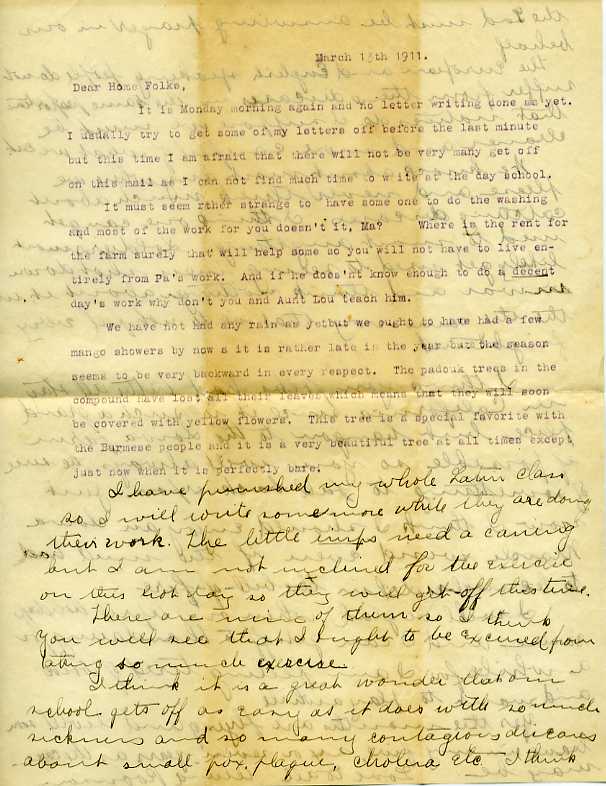 March 13th 1911.
Dear Home Folks,
It is Monday morning again and no letter writing done as yet.
I usually try to get some of my letters off before the last minute
but this time I am afraid that there will not be very many get off
on this mail as I can not find much time to write at the day school.
It must seem rther strange to have some one to do the washing
and most of the work for you doesn't it, Ma? Where is the rent for
the farm surely that will help some so you will not have to live en-
tirely from Pa's work. And if he does'nt know enough to do a decent
day's work why don't you and Aunt Lou teach him.
We have not had any rain as yetbut we ought to have had a few
mango showers by now a it is rather late in the year but the season
seems to be very backward in every respect. The padouk trees in the
compound have lost all their leaves which means that they will soon
be covered with yellow flowers. This tree is a special favorite with
the Burmese people and it is a very beautiful tree at all times except
just now when it is perfectly bare.
I have punished my whole Latin class
so I will write some more while they are doing
their work. The little imps need a caning
but I am not inclined for the exercise
on this hot day so they will get off this time.
There are nine of them so I think
you will see that I ought to be excused from
taking so much exercise.
I think it is a great wonder that our
school gets off as easy as it does with so much
sickness and so many contagious diseases
about small pox, plague, cholera etc I think